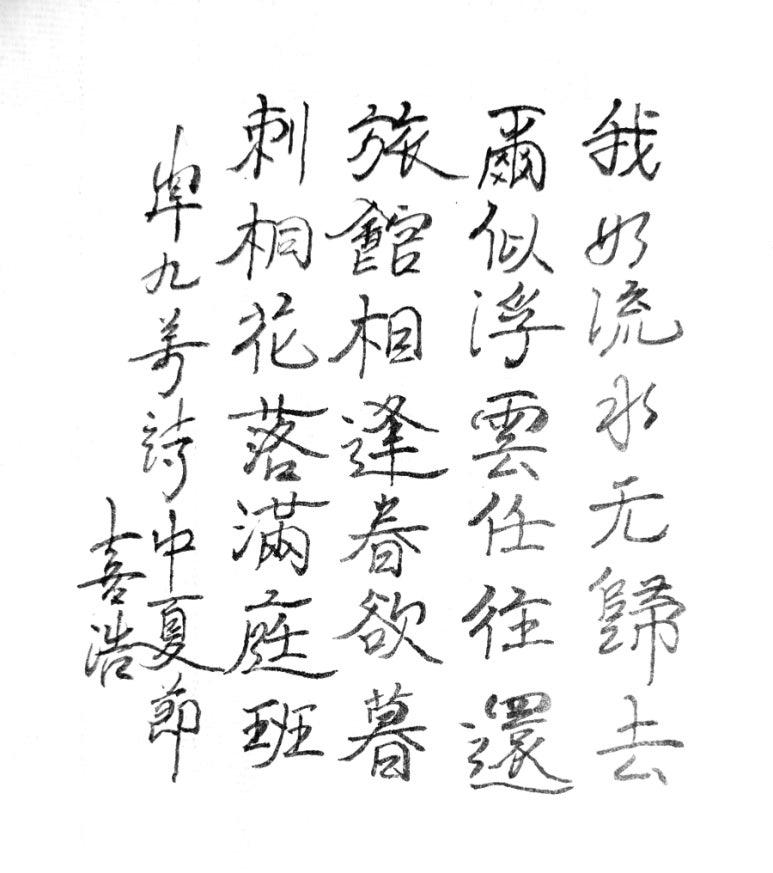 我如流水无歸去
爾似浮雲任往還
旅館相逢春欲暮
刺桐花落滿庭班
九萬詩中夏節
喜浩